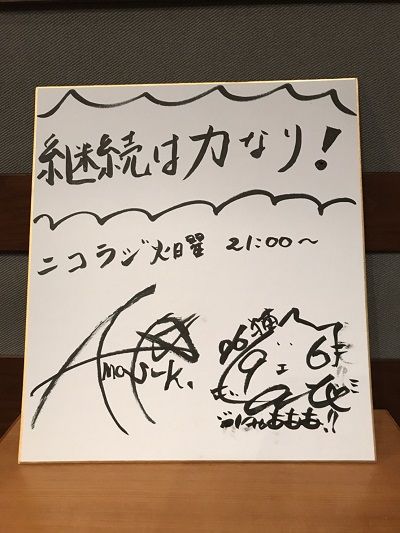 継続は力なり!
ニコラジ火曜 21:00〜
Amasuk.
96猫
ももも!!